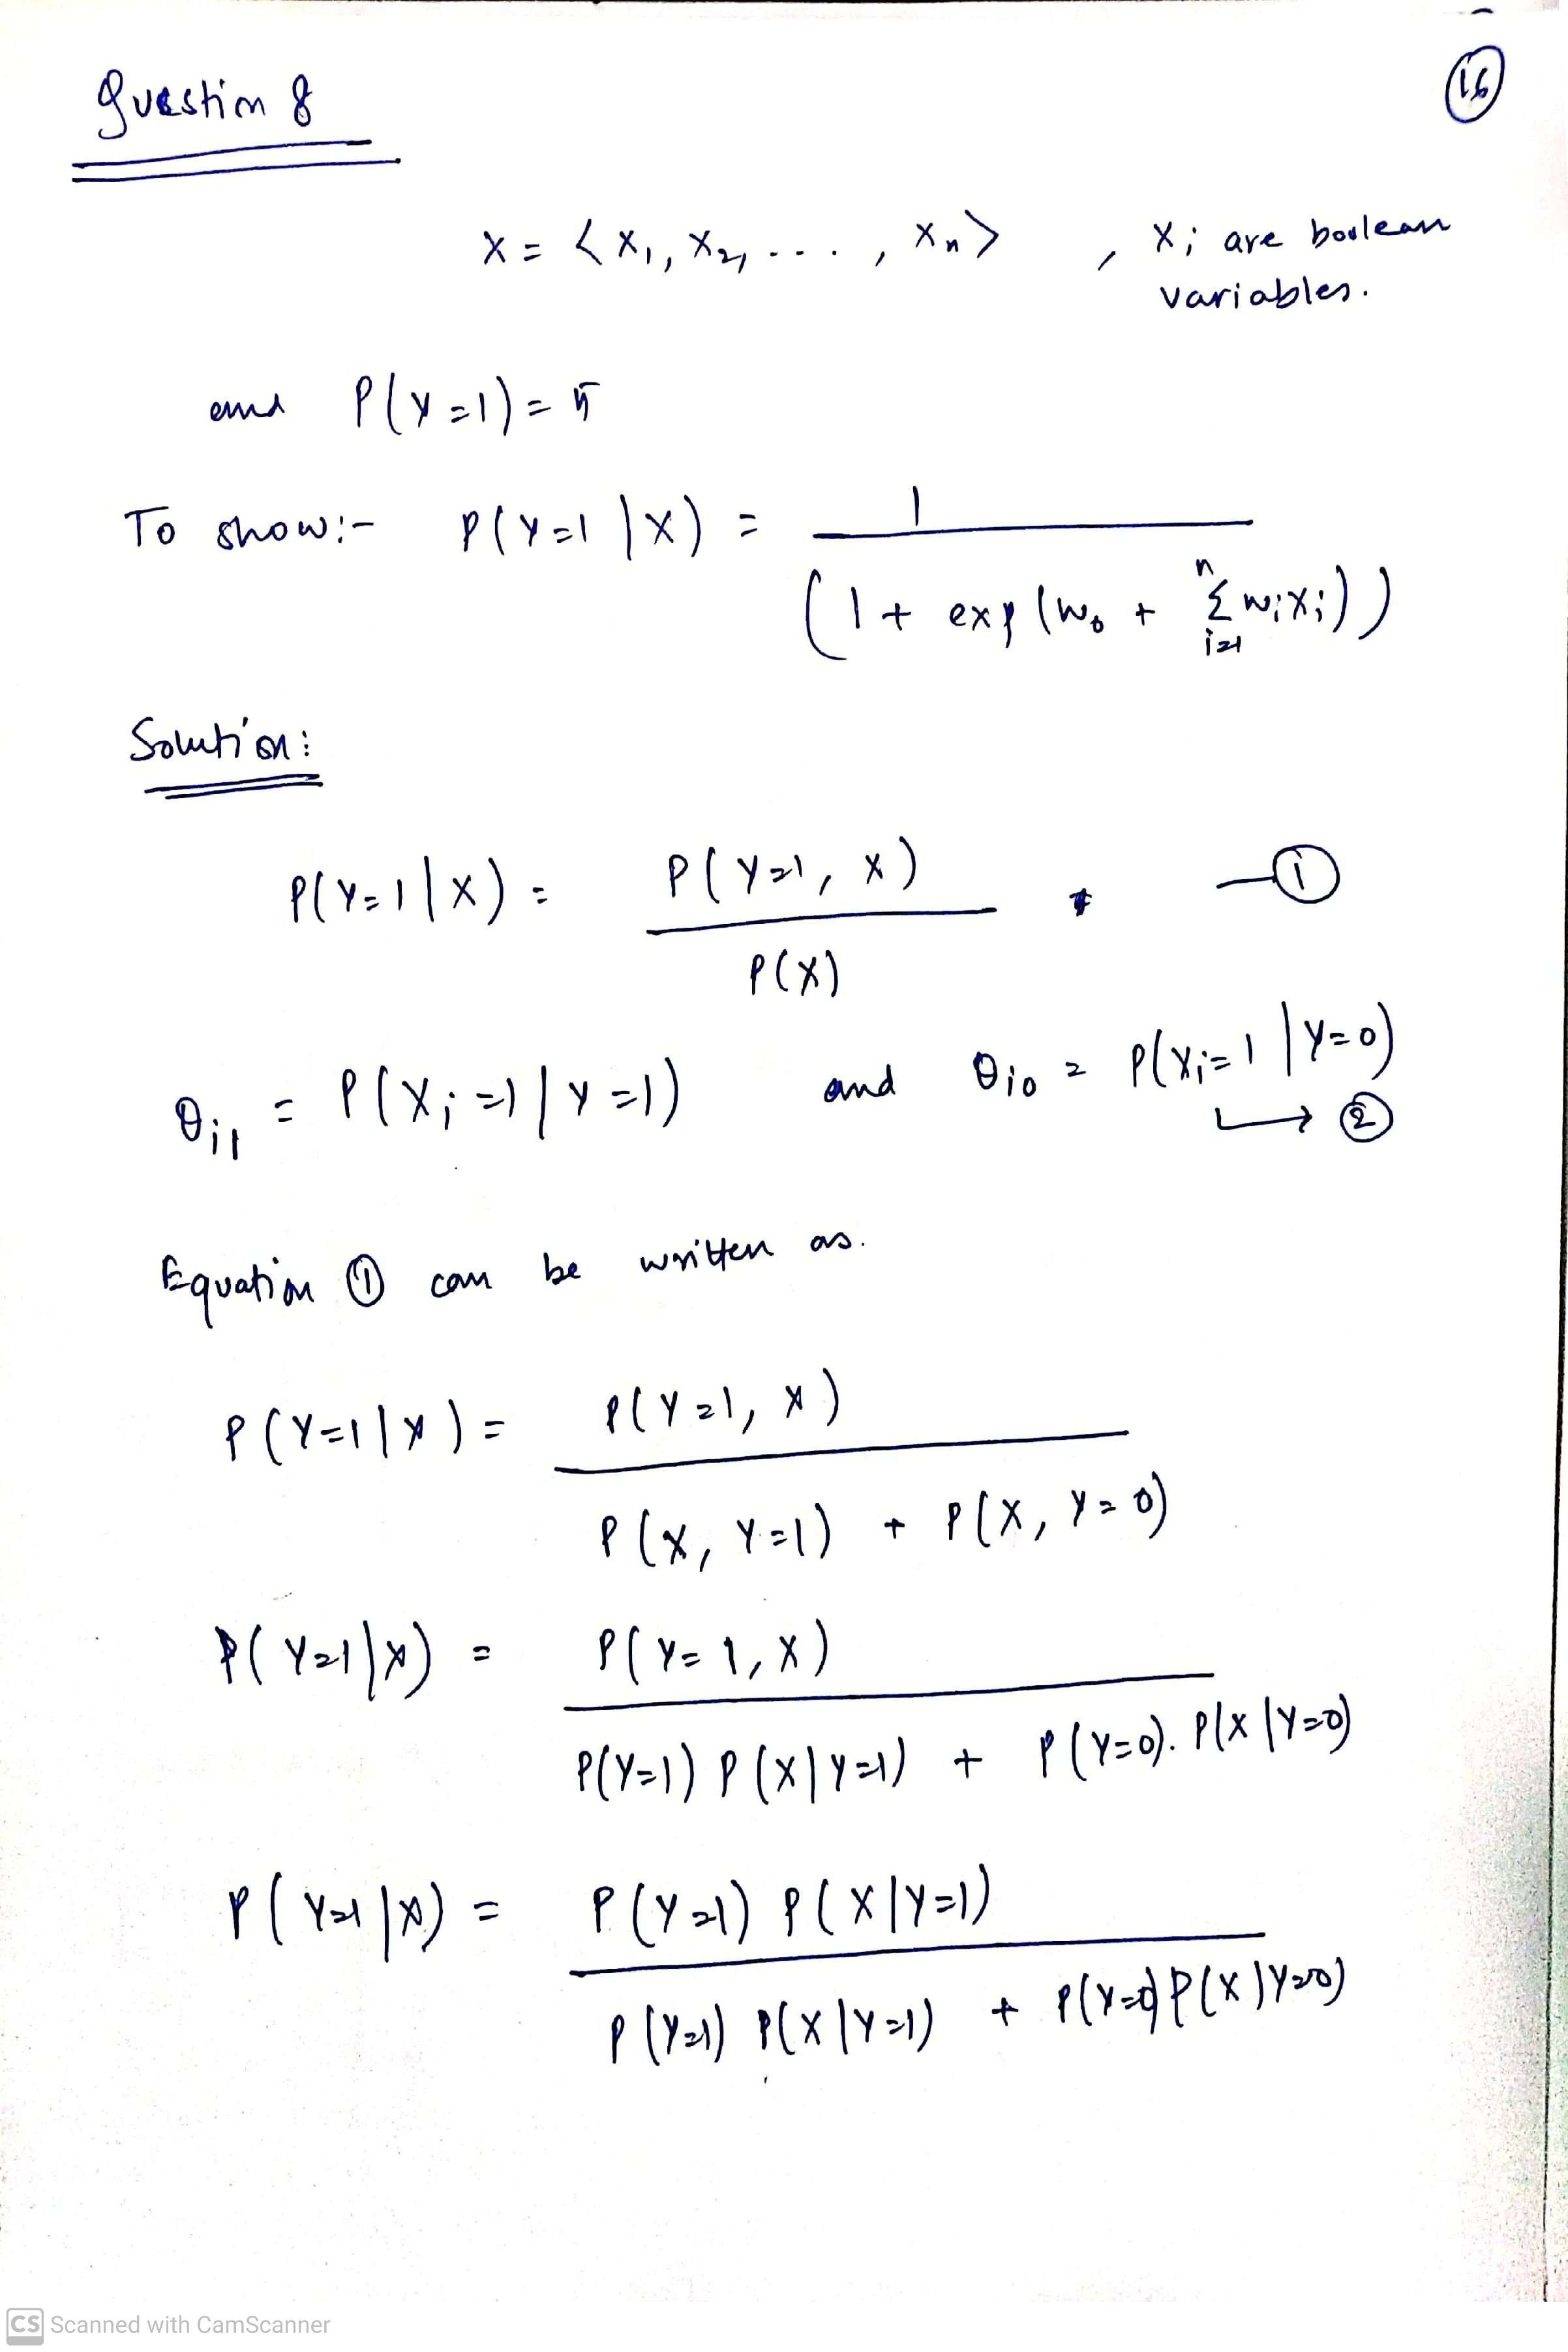 Question 8
16
X = < X₁, X₂, ..., Xₙ> , Xᵢ are boolean
variables.
and P(Y=1) =
To show:- P(Y=1 | X) = 1 / (1 + exp(w₀ + Σᵢ₌₁ⁿ wᵢXᵢ))
Solution:
P(Y=1|X) = P(Y=1, X) / P(X) —①
θᵢ₁ = P(Xᵢ=1 | Y=1) and θᵢ₀ = P(Xᵢ=1 | Y=0)
↳ ②
Equation ① can be written as.
P(Y=1|X) = P(Y=1, X) / P(X, Y=1) + P(X, Y=0)
P(Y=1|X) = P(Y=1, X) / P(Y=1) P(X|Y=1) + P(Y=0). P(X|Y=0)
P(Y=1|X) = P(Y=1) P(X|Y=1) / P(Y=1) P(X|Y=1) + P(Y=0) P(X|Y=0)
CS Scanned with CamScanner